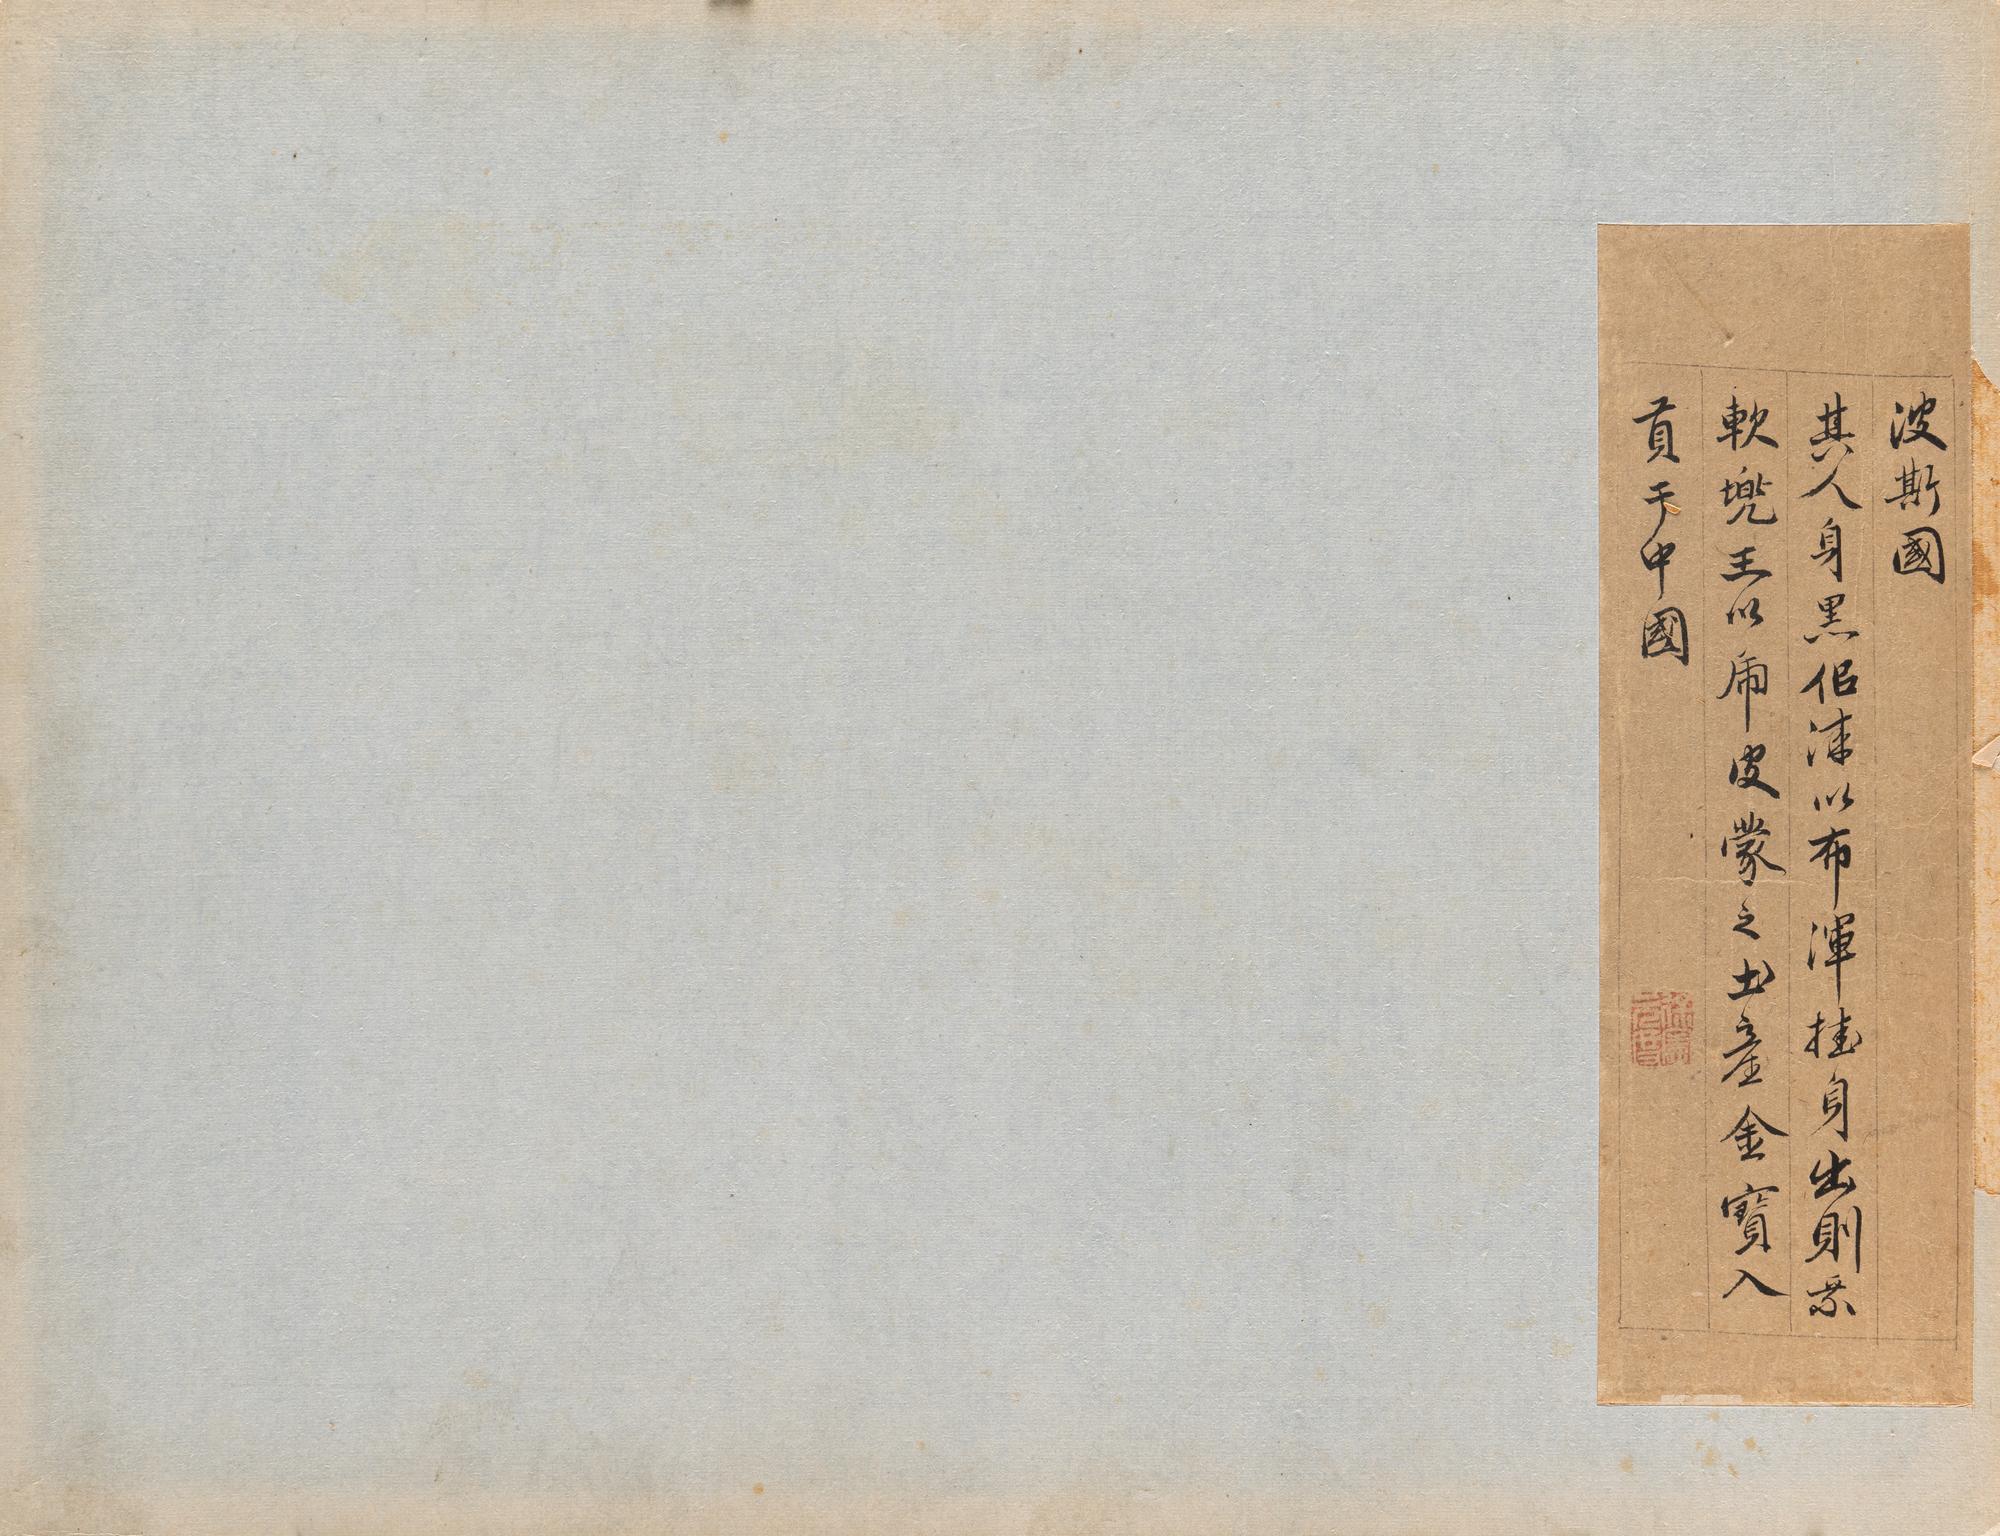 波斯國
其人身黑佀漆以布渾挂身出則乘
軟兠王以虎皮蒙之土產金寶入
貢于中國